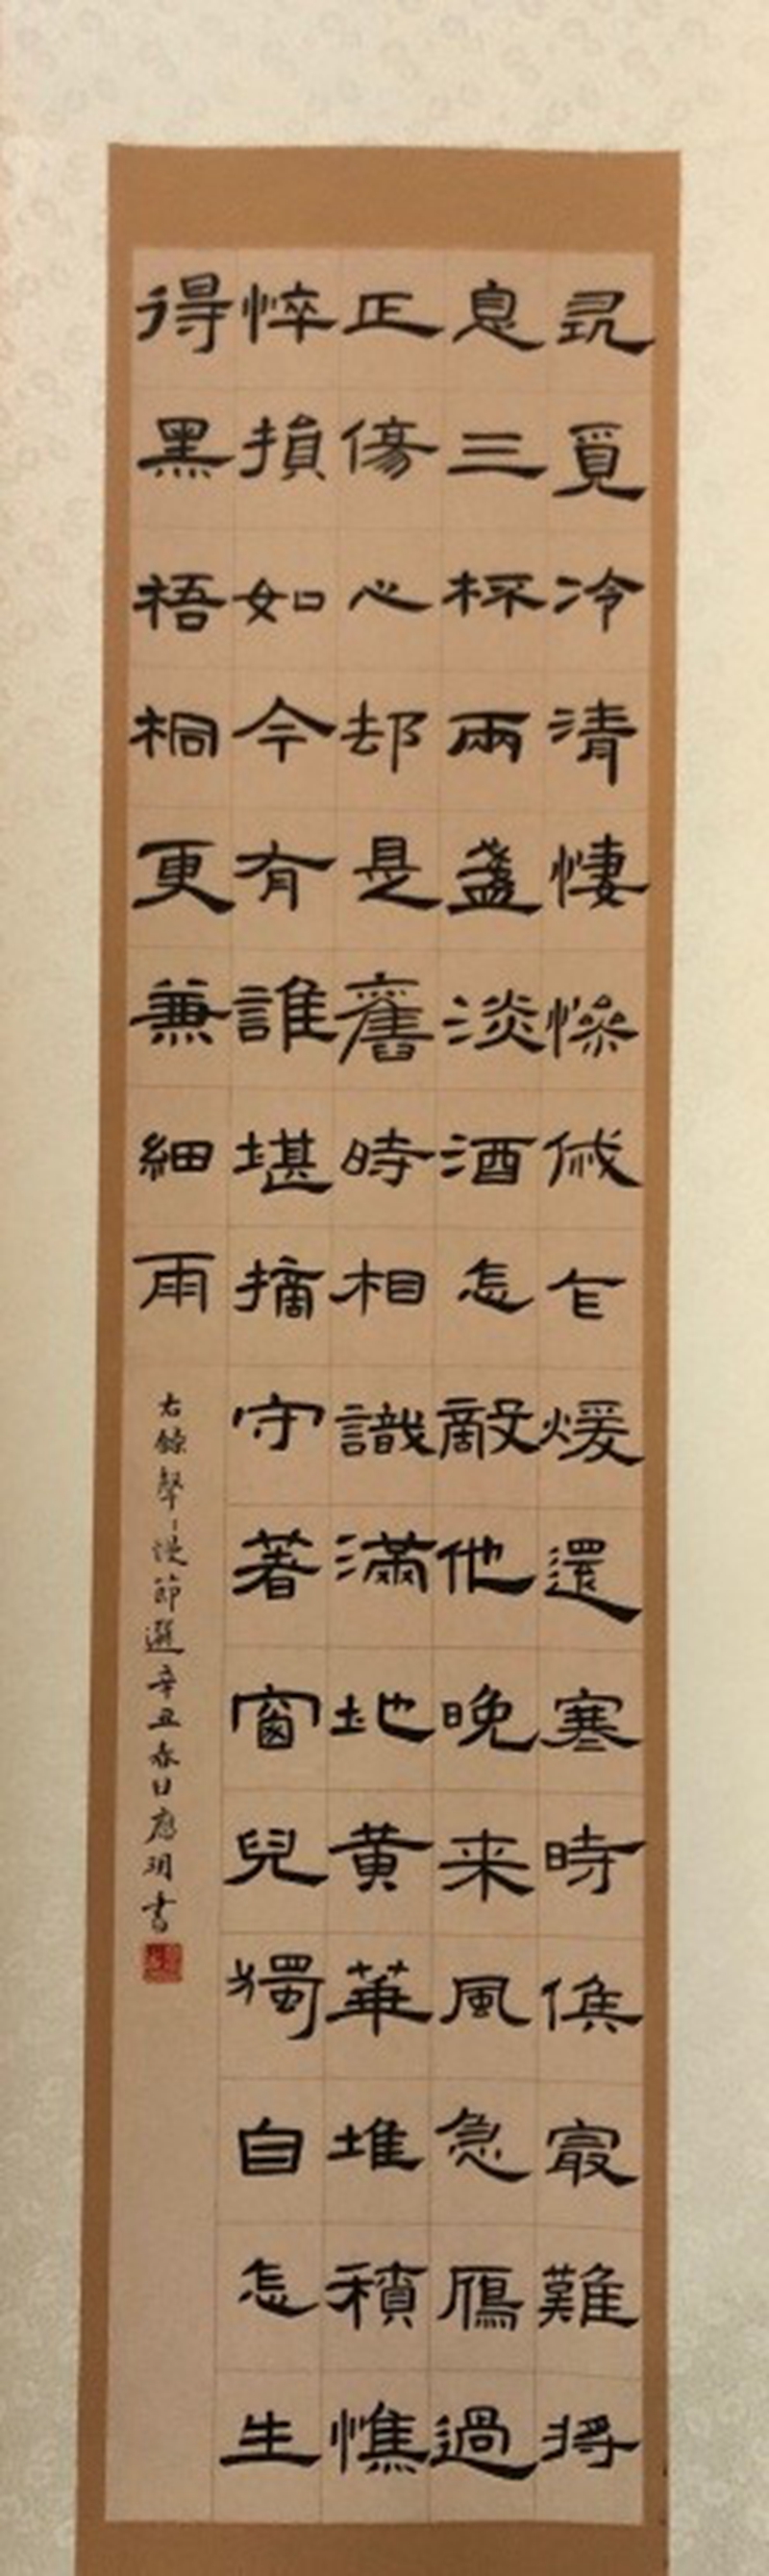 尋覓冷清悽慘傶乍煖還寒時候最難將
息三杯兩盞淡酒怎敵他晚来風急鴈過
正傷心却是舊時相識滿地黄華堆積憔
悴損如今有誰堪摘守著窗兒獨自怎生
得黑梧桐更兼細雨
右錄聲聲慢節選辛丑春日應玥書